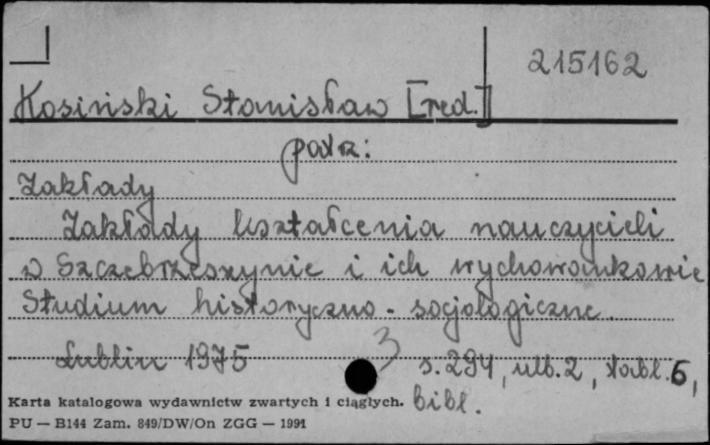 215162
Kosiński Stanisław [red.]
patrz:
Zakłady
Zakłady kształcenia nauczycieli
w Szczebrzeszynie i ich wychowankowie
Studium historyczno-socjologiczne.
Lublin 1975 3 s. 294, ulb. 2, tabl. 6,
bibl.
Karta katalogowa wydawnictw zwartych i ciągłych.
PU — B144 Zam. 849/DW/On ZGG — 1991